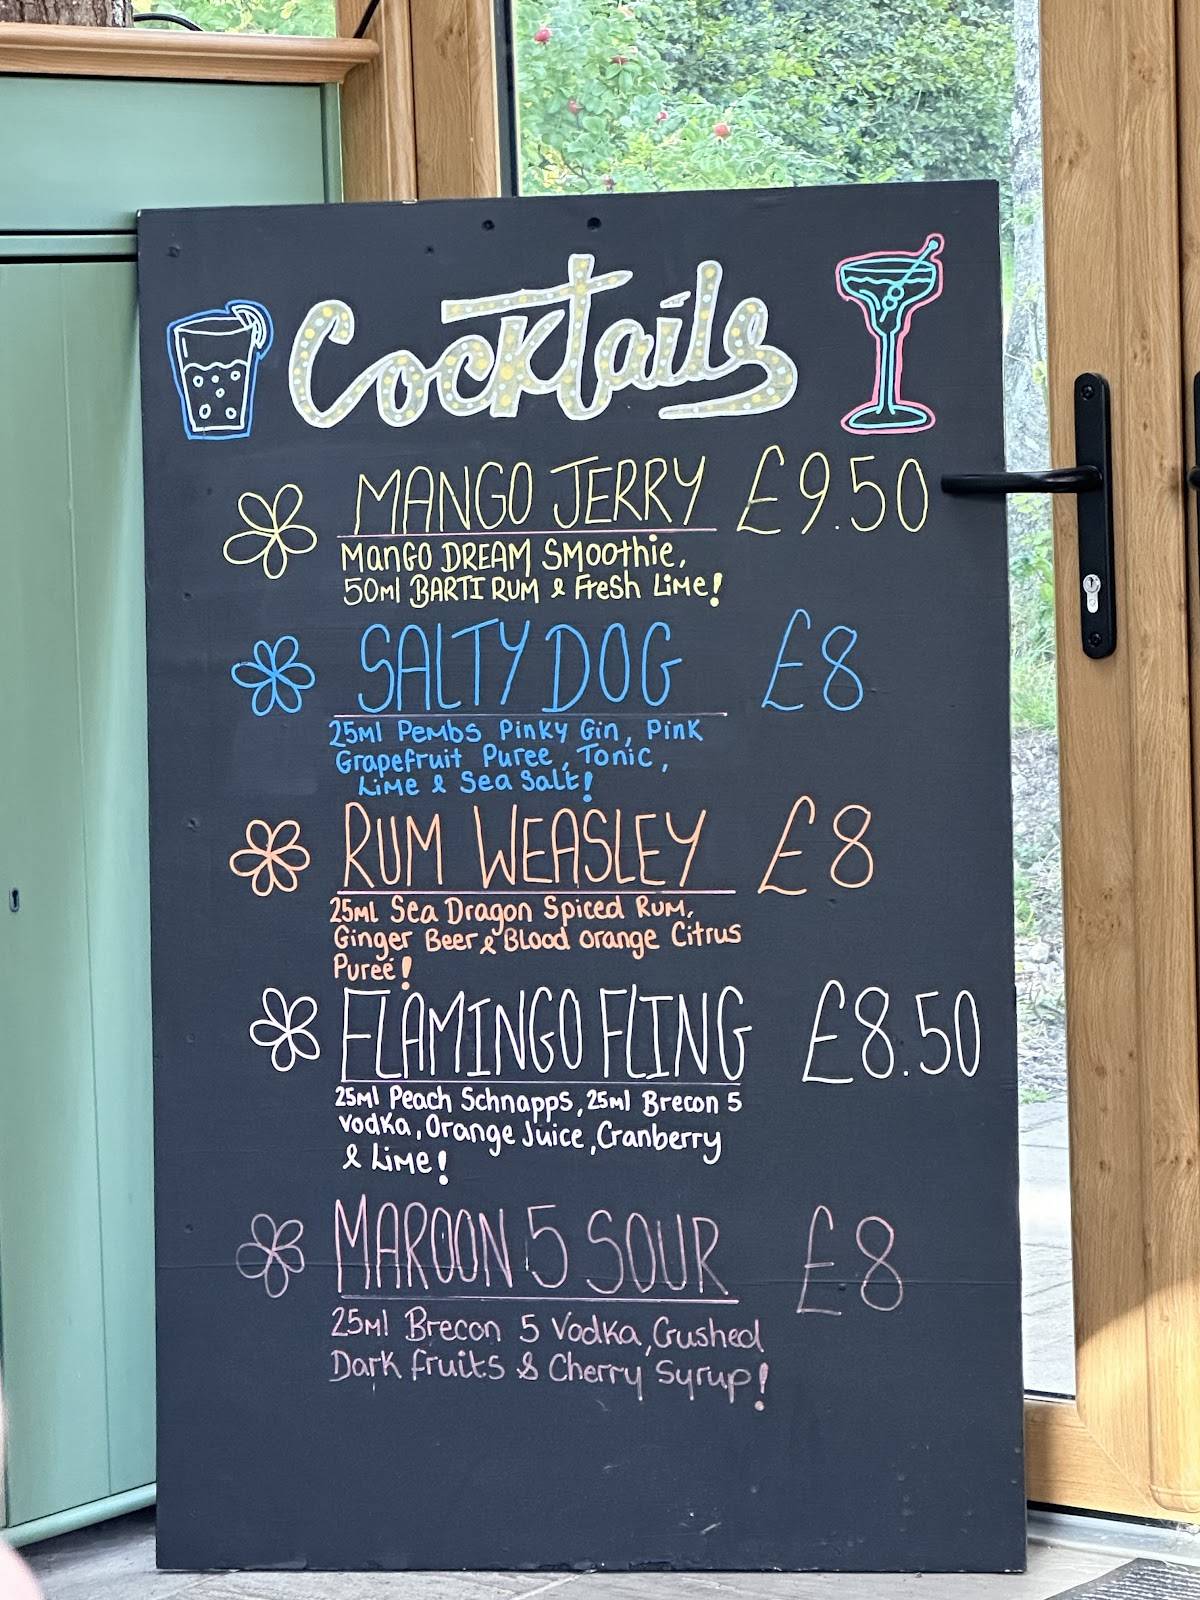 Cocktails
MANGO JERRY £9.50
MANGO DREAM SMOOthie,
50ml BARTI RUM & Fresh Lime!
SALTY DOG £8
25ml Pembs Pinky Gin, Pink
Grapefruit Puree, Tonic,
Lime & Sea Salt!
RUM WEASLEY £8
25ml Sea Dragon Spiced Rum,
Ginger Beer & Blood orange Citrus
Pureé!
FLAMINGO FLING £8.50
25ml Peach Schnapps, 25ml Brecon 5
vodka, Orange Juice, Cranberry
& Lime!
MAROON 5 SOUR £8
25ml Brecon 5 Vodka, Crushed
Dark fruits & Cherry Syrup!